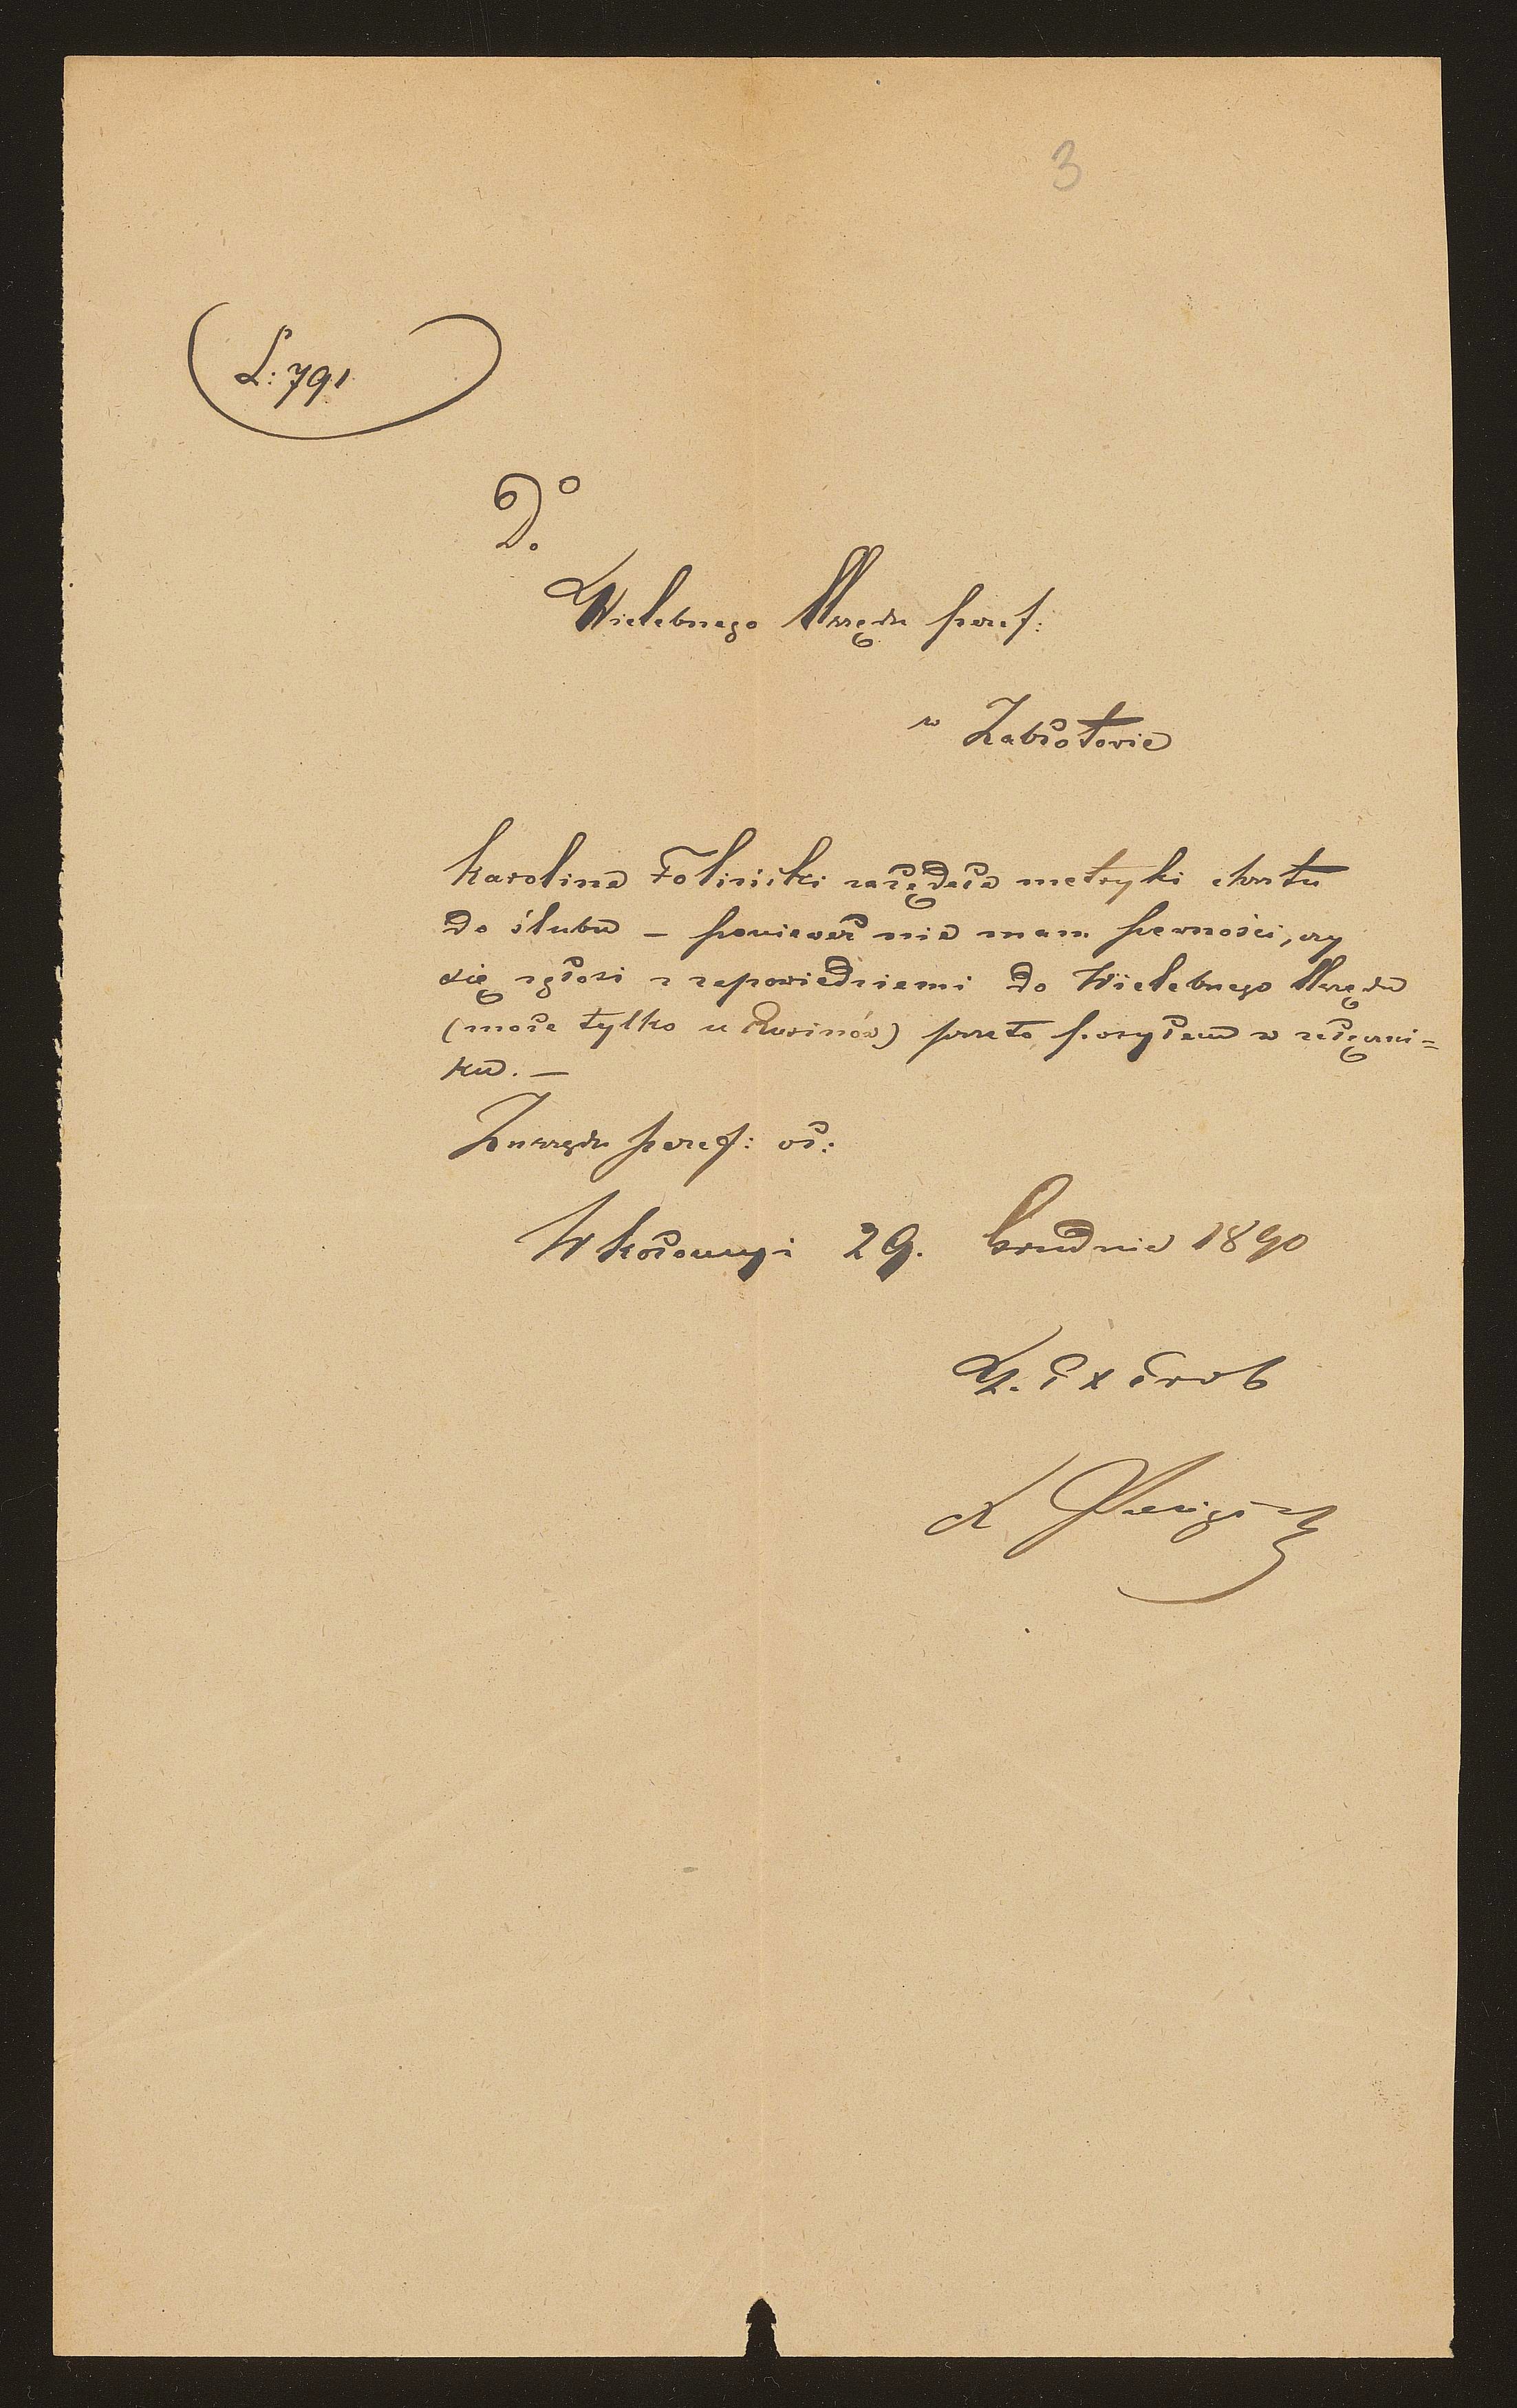 3
L: 791
Do
Wielebnego Urzędu paraf:
w Zabłotowie
Karolina zażądała metryki chrztu
do ślubu – ponieważ nie mam pewności, czy
się zgłosi z zapowiedziami do Wielebnego Urzędu
(może tylko u Rusinów) przeto posyłam w załączni=
ku. –
Z urzędu paraf: oł:
W Kołomyi 29. Grudnia 1890